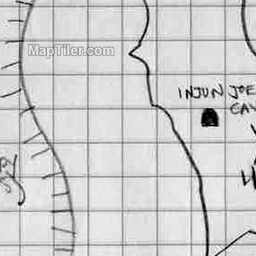 MapTiler.com
INJUN JOE
CAV